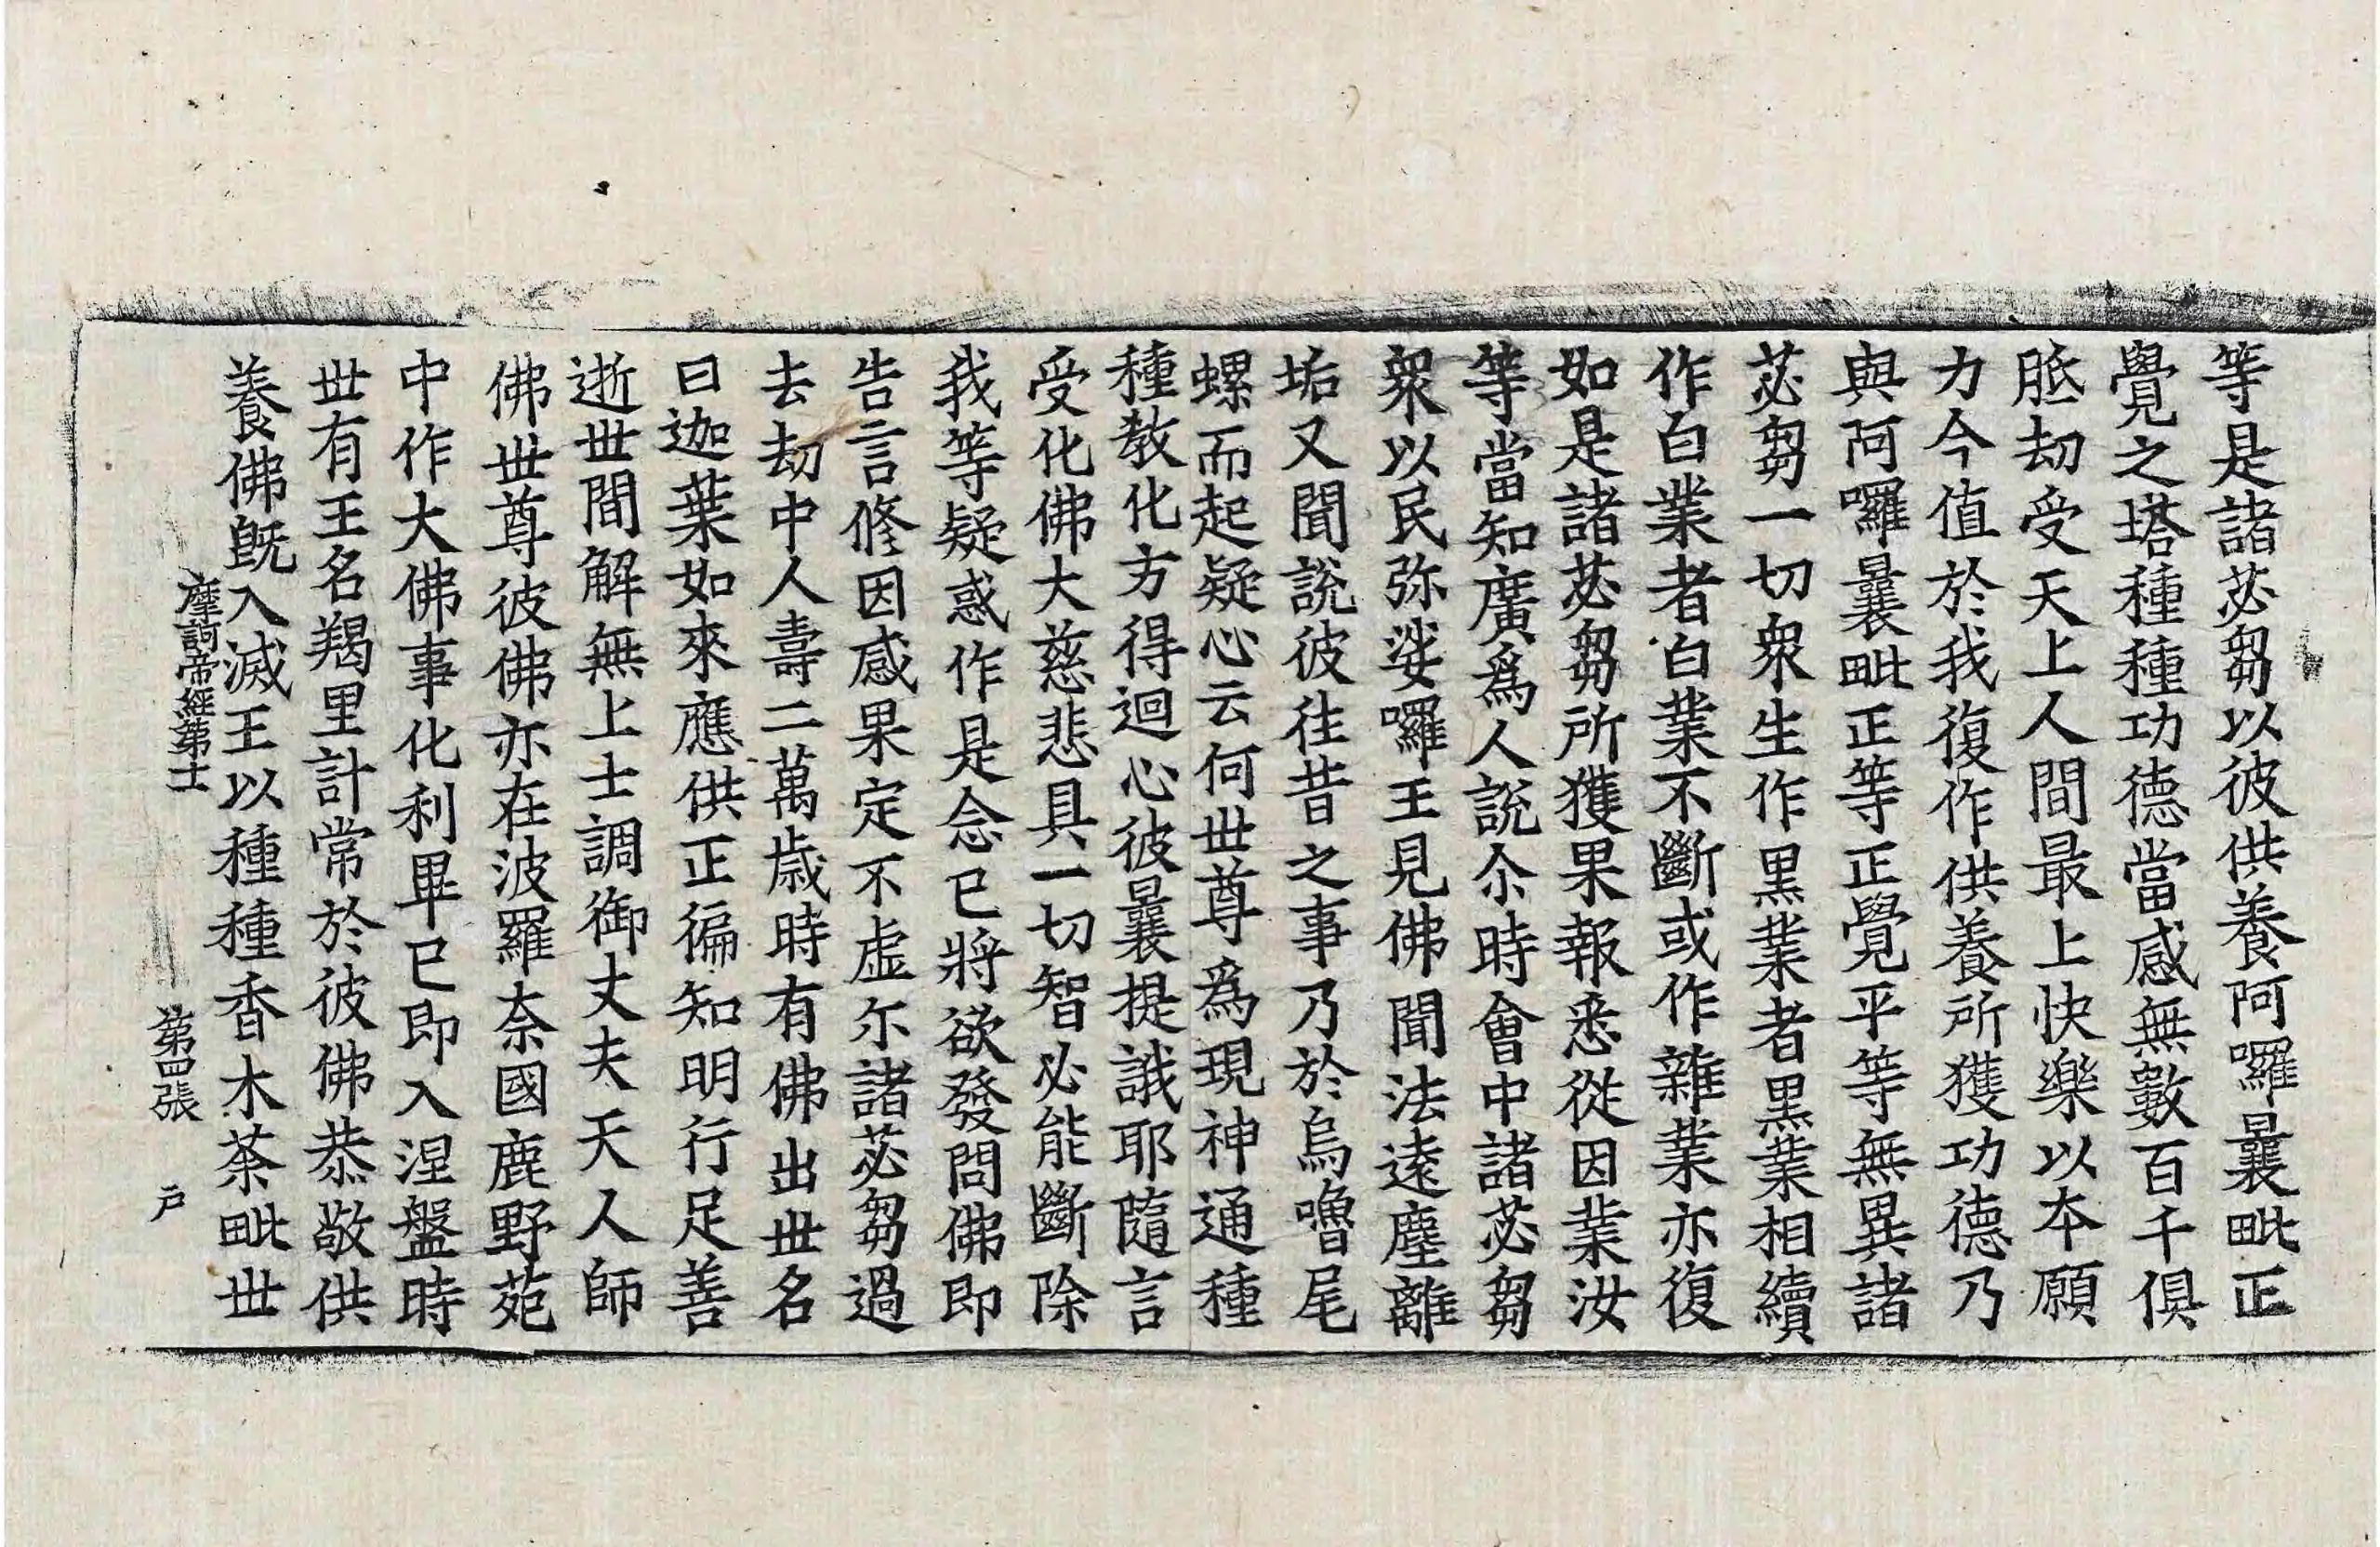 等是諸苾芻以彼供養阿囉曩毗正
覺之塔種種功德當感無數百千俱
胝劫受天上人間最上快樂以本願
力今值於我復作供養所獲功德乃
與阿囉曩毗正等正覺平等無異諸
苾芻一切衆生作黑業者黑業相續
作白業者白業不斷或作雜業亦復
如是諸苾芻所獲果報悉從因業汝
等當知廣爲人說尒時會中諸苾芻
衆以民弥娑囉王見佛聞法遠塵離
垢又聞說彼往昔之事乃於烏嚕尾
螺而起疑心云何世尊爲現神通種
種教化方得迴心彼曩提誐耶隨言
受化佛大慈悲具一切智必能斷除
我等疑惑作是念已將欲發問佛即
告言修因感果定不虛尒諸苾芻過
去劫中人壽二萬歲時有佛出世名
曰迦葉如來應供正徧知明行足善
逝世間解無上士調御丈夫天人師
佛世尊彼佛亦在波羅奈國鹿野苑
中作大佛事化利畢已即入涅盤時
世有王名羯里計常於彼佛恭敬供
養佛旣入滅王以種種香木荼毗世
摩訶帝經第士 第四張 户